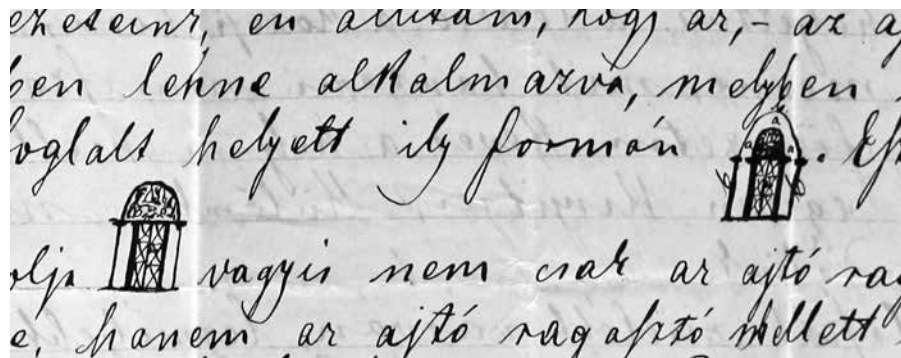 en állítám, hogy az,- az
lenne alkalmazva, melyben
oglalt helyett ily formán . Ef
olja vagyis nem csak az ajtó rag
e, hanem az ajtó ragasztó mellett